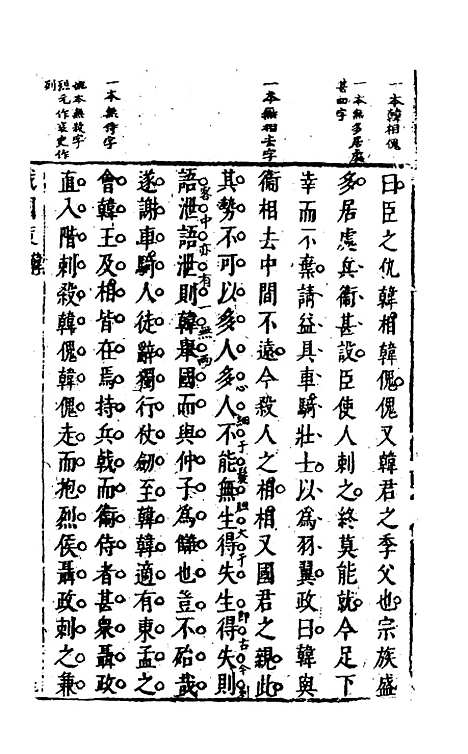 一本韓相傀
一本無多居處
甚四字
一本無相去字
一本無侍字
列
曰臣之仇韓相韓傀傀又韓君之季父也宗族盛
多居處兵衞甚設臣使人刺之終莫能就今足下
幸而不棄請益具車騎壯士以爲羽翼政曰韓與
衞相去中間不遠今殺人之相相又國君之親此
其勢不可以多人多人不能無生得失生得失則
語泄語泄則韓舉國而與仲子爲讎也豈不殆哉
遂謝車騎人徒辭獨行仗劒至韓韓適有東孟之
會韓王及相皆在焉持兵戟而衞侍者甚衆聶政
直入階刺殺韓傀韓傀走而抱烈侯聶政刺之兼